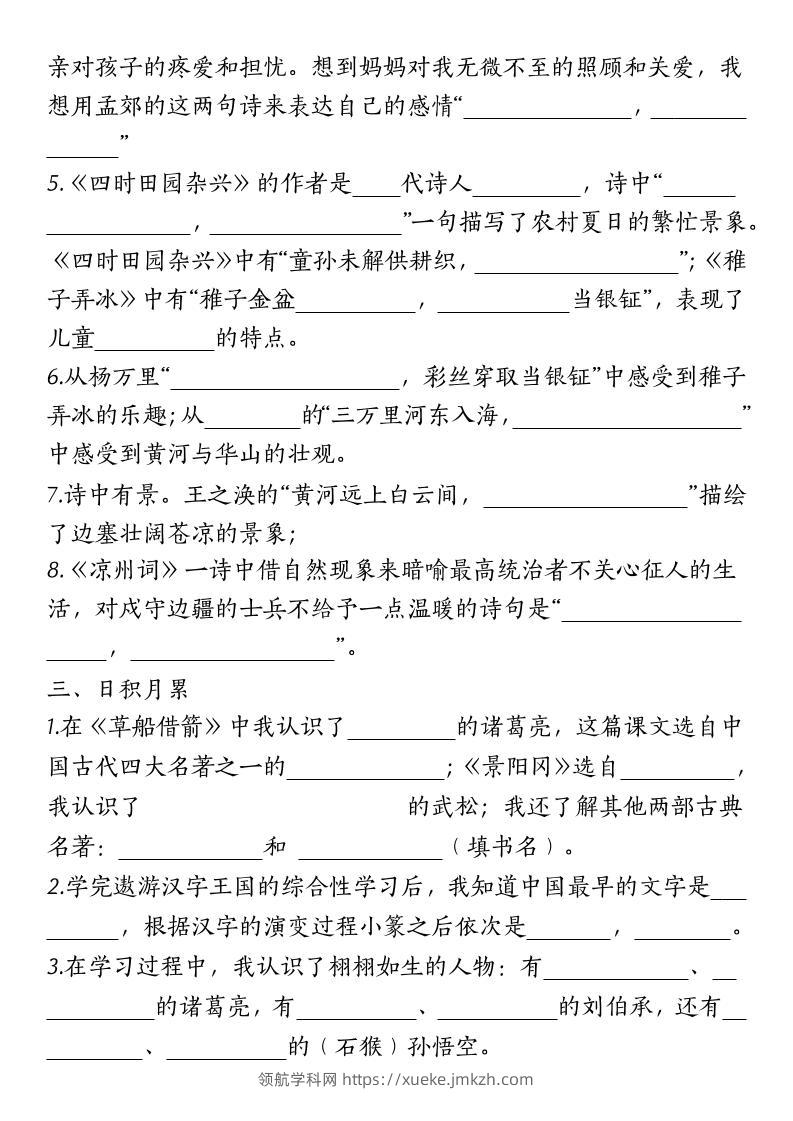 亲对孩子的疼爱和担忧。想到妈妈对我无微不至的照顾和关爱，我
想用孟郊的这两句诗来表达自己的感情“______________，________
______”
5.《四时田园杂兴》的作者是____代诗人_________，诗中“______
____________，________________”一句描写了农村夏日的繁忙景象。
《四时田园杂兴》中有“童孙未解供耕织，_________________”；《稚
子弄冰》中有“稚子金盆__________，___________当银钲”，表现了
儿童__________的特点。
6.从杨万里“___________________，彩丝穿取当银钲”中感受到稚子
弄冰的乐趣；从________的“三万里河东入海，___________________”
中感受到黄河与华山的壮观。
7.诗中有景。王之涣的“黄河远上白云间，_________________”描绘
了边塞壮阔苍凉的景象；
8.《凉州词》一诗中借自然现象来暗喻最高统治者不关心征人的生
活，对戍守边疆的士兵不给予一点温暖的诗句是“_______________
_____，_________________”。
三、日积月累
1.在《草船借箭》中我认识了_________的诸葛亮，这篇课文选自中
国古代四大名著之一的_____________；《景阳冈》选自_________，
我认识了 的武松；我还了解其他两部古典
名著：____________和 ____________（填书名）。
2.学完遨游汉字王国的综合性学习后，我知道中国最早的文字是___
______，根据汉字的演变过程小篆之后依次是_______，________。
3.在学习过程中，我认识了栩栩如生的人物：有____________、__
_________的诸葛亮，有__________、__________的刘伯承，还有__
________、__________的（石猴）孙悟空。
领航学科网 https://xueke.jmkzh.com